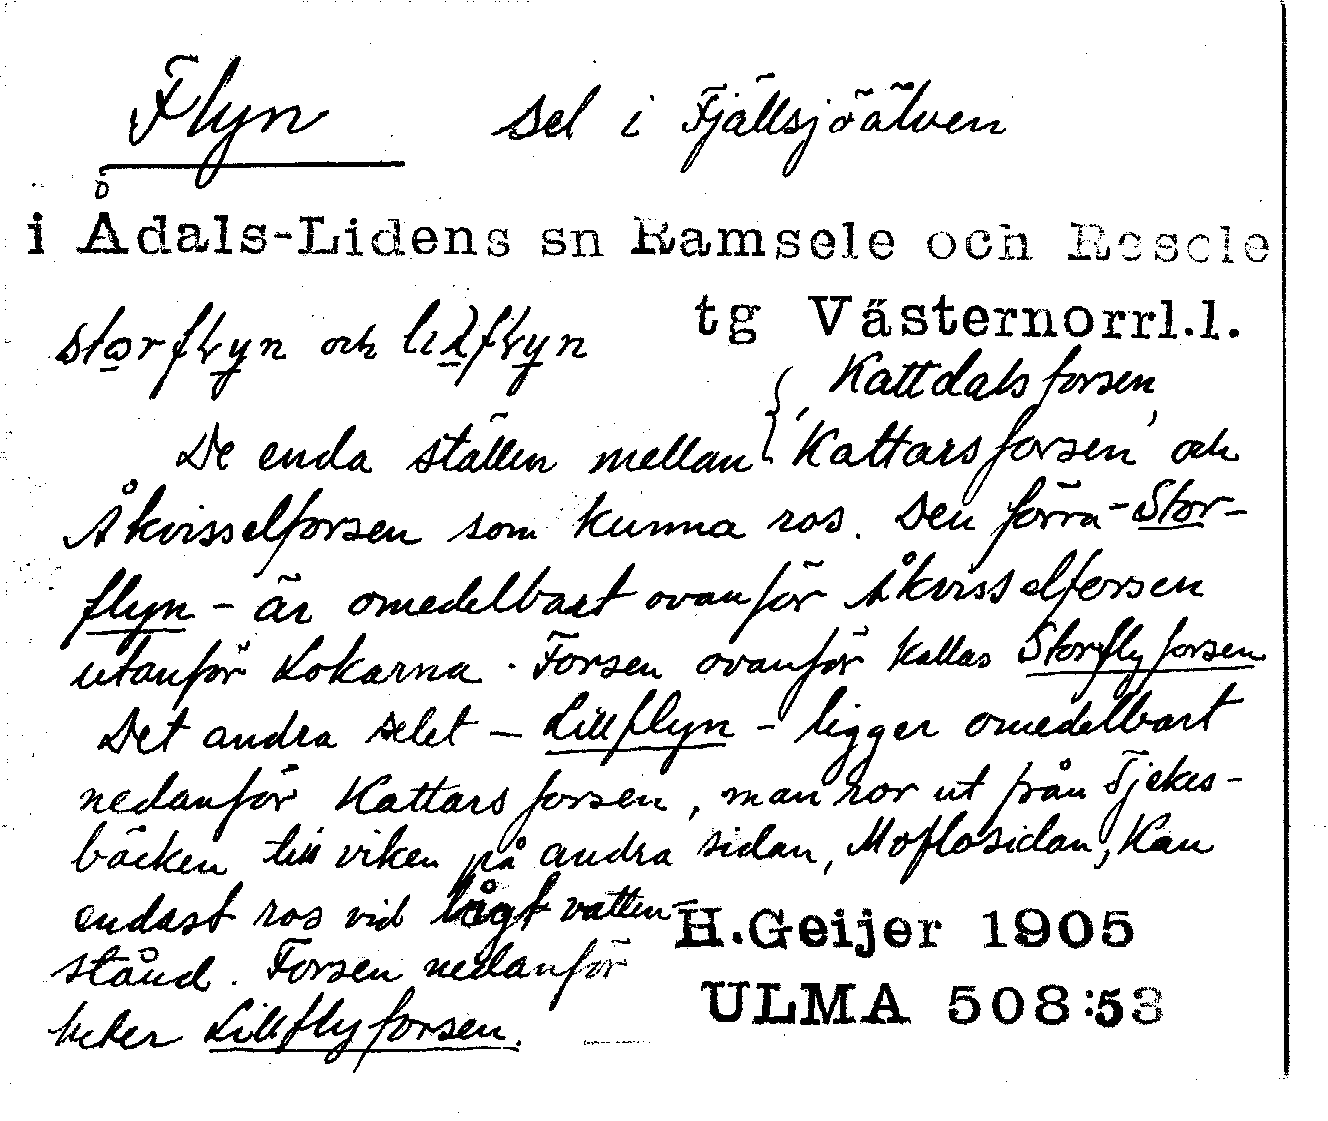 Flyn sel i Fjällsjöälven
i Ådals-Lidens sn Ramsele och Resele
tg Västernorrl.l.
storflyn och lilflyn
Kattdalsforsen
De enda ställen mellan { 'Kattarsforsen' och
Åkvisselforsen som kunna ros. Den förra - Stor-
flyn - är omedelbart ovanför Åkvisselforsen
utanför Lokarna. Forsen ovanför kallas Storflyforsen
Det andra selet - Lillflyn - ligger omedelbart
nedanför Kattarsforsen, man ror ut från Tjekes-
bäcken till viken på andra sidan, Moflosidan, Kan
endast ros vid lågt vatten-
stånd. Forsen nedanför
heter Lillflyforsen.
H.Geijer 1905
ULMA 508:53